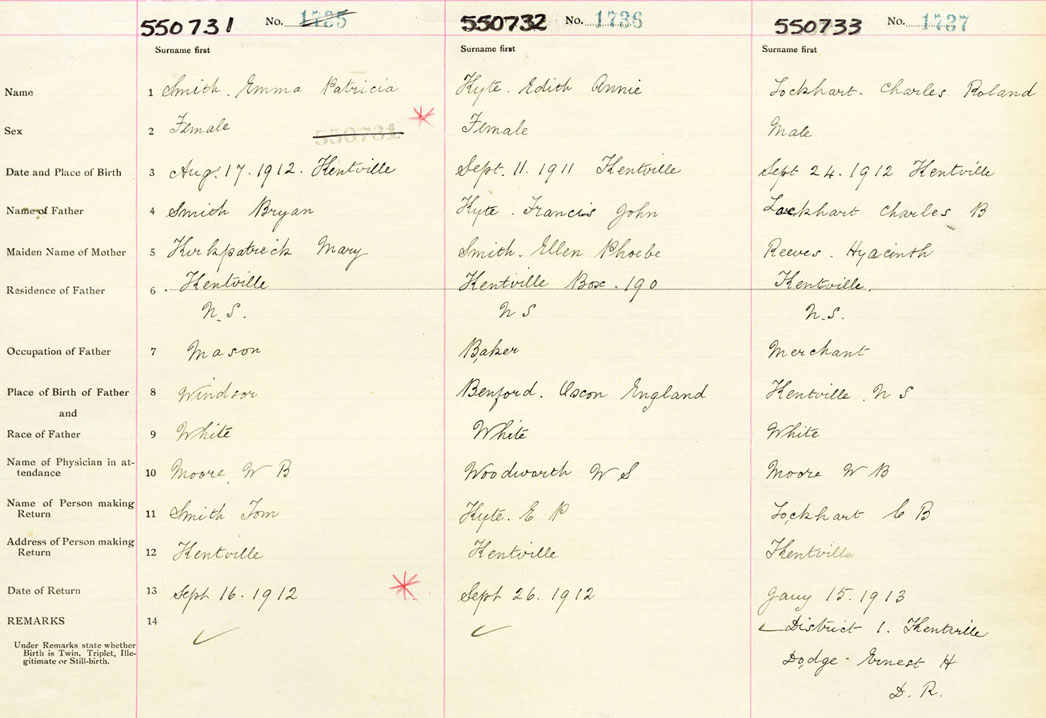 550731 No. 1735 550732 No. 1736 550733 No. 1737
Surname first Surname first Surname first
Name 1 Smith. Emma Patricia Kyte. Edith Annie Lockhart. Charles Roland
Sex 2 Female 550731 Female Male
Date and Place of Birth 3 Aug. 17. 1912. Kentville Sept. 11. 1911 Kentville Sept 24. 1912 Kentville
Name of Father 4 Smith Bryan Kyte. Francis John Lockhart Charles B
Maiden Name of Mother 5 Kirkpatrick Mary Smith. Ellen Phoebe Reeves. Hyacinth
Residence of Father 6 Kentville Kentville Box. 190 Kentville.
N.S. N S N.S.
Occupation of Father 7 Mason Baker Merchant
Place of Birth of Father 8 Windsor Benford. Oxon England Kentville N S
and
Race of Father 9 White White White
Name of Physician in at-
tendance 10 Moore W B Woodworth W S Moore W B
Name of Person making
Return 11 Smith Tom Kyte. E P Lockhart C B
Address of Person making
Return 12 Kentville Kentville Kentville
Date of Return 13 Sept 16. 1912 Sept 26. 1912 Jany 15. 1913
REMARKS 14 District 1. Kentville
Under Remarks state whether
Birth is Twin, Triplet, Ille-
gitimate or Still-birth.
Dodge. Ernest H
D. R.